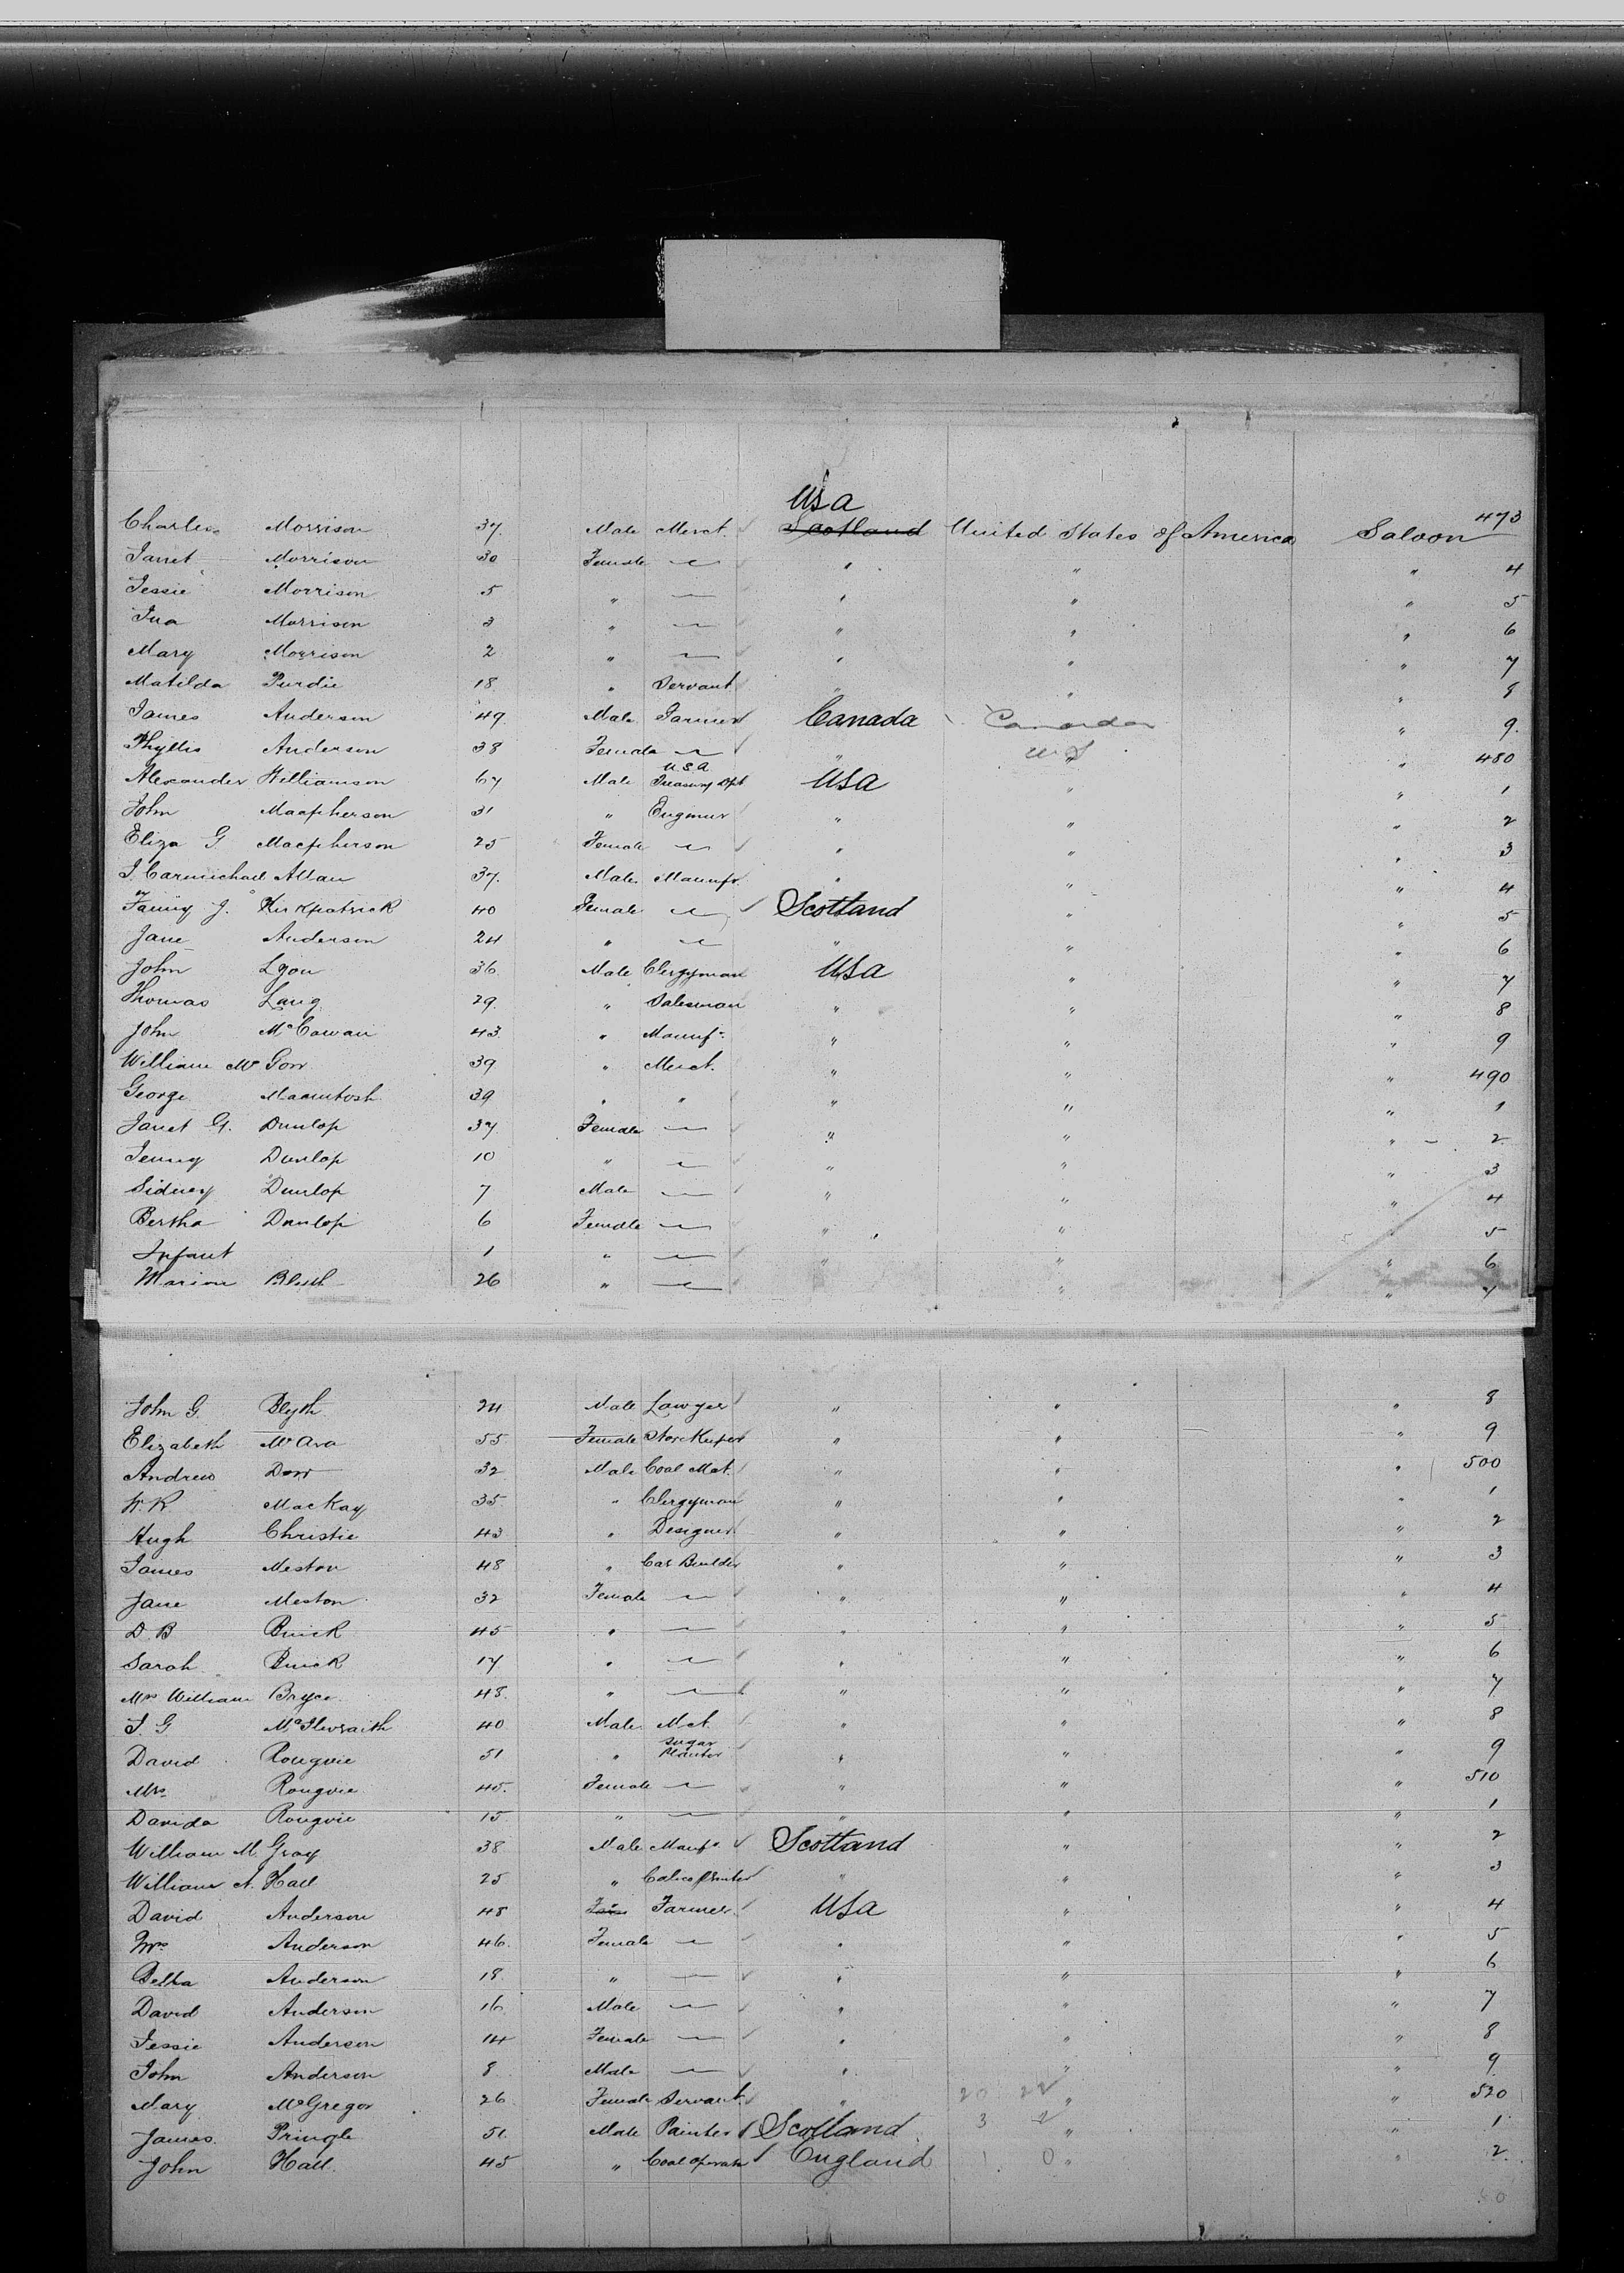 USA
Charles Morrison 37. Male Merct. Scotland United States of America Saloon 473
Janet Morrison 30 Female " " " 4
Jessie Morrison 5 " " " " 5
Ina Morrison 3 " " " " 6
Mary Morrison 2 " " " " 7
Matilda Purdie 18 " Servant " " " 8
James Anderson 49 Male Farmer Canada Canada " 9
Phyllis Anderson 38 Female " US " 480
Alexander Williamson 67 Male U.S.A Treasury Dpt USA " " 1
John Macpherson 31 " Engineer " " " 2
Eliza G Macpherson 25 Female " " " 3
J. Carmichael Allan 37. Male Manufr. " " " 4
Fanny J. Kirkpatrick 40 Female Scotland " " 5
Jane Anderson 24 " " " " 6
John Lyon 36 Male Clergyman USA " " 7
Thomas Lang 29 " Salesman " " " 8
John McCowan 43 " Manufr. " " " 9
William Mc Gow 39 " Merct. " " " 490
George Macintosh 39 " " " " " 1
Janet G. Dunlop 37 Female " " " 2
Jenny Dunlop 10 " " " " 3
Sidney Dunlop 7 Male " " " 4
Bertha Dunlop 6 Female " " " 5
Infant 1 " " " " 6
Marion Blyth 26 " " " 7
John G. Blyth 24 Male Lawyer " " " 8
Elizabeth McAra 55 Female StoreKeeper " " " 9
Andrew Dow 32 Male Coal Mct. " " " 500
W. R. MacKay 35 " Clergyman " " " 1
Hugh Christie 43 " Designer " " " 2
James Meston 48 " Car Builder " " " 3
Jane Meston 32 Female " " " 4
D. B Buick 45 " " " " 5
Sarah Buick 17 " " " " 6
Mrs William Bryce 48. " " " " 7
J. G McIlwraith 40 Male Mct. " " " 8
David Rougvie 51 " Sugar Planter " " " 9
Mrs Rougvie 45. Female " " " 510
Davida Rougvie 15 " " " " 1
William M. Gray 38 Male Manfr Scotland " " 2
William A. Hall 25 " Calico Printer " " " 3
David Anderson 48 Farmer USA " " 4
Mrs Anderson 46. Female " " " 5
Bella Anderson 18 " " " " 6
David Anderson 16 Male " " " 7
Jessie Anderson 14 Female " " " 8
John Anderson 8 Male " " " 9
Mary McGregor 26 Female Servant. " 20 22 " " 520
James Pringle 51. Male Painter Scotland 3 2 " " 1
John Hall 45 " Coal Operator England 1 0 " " 2